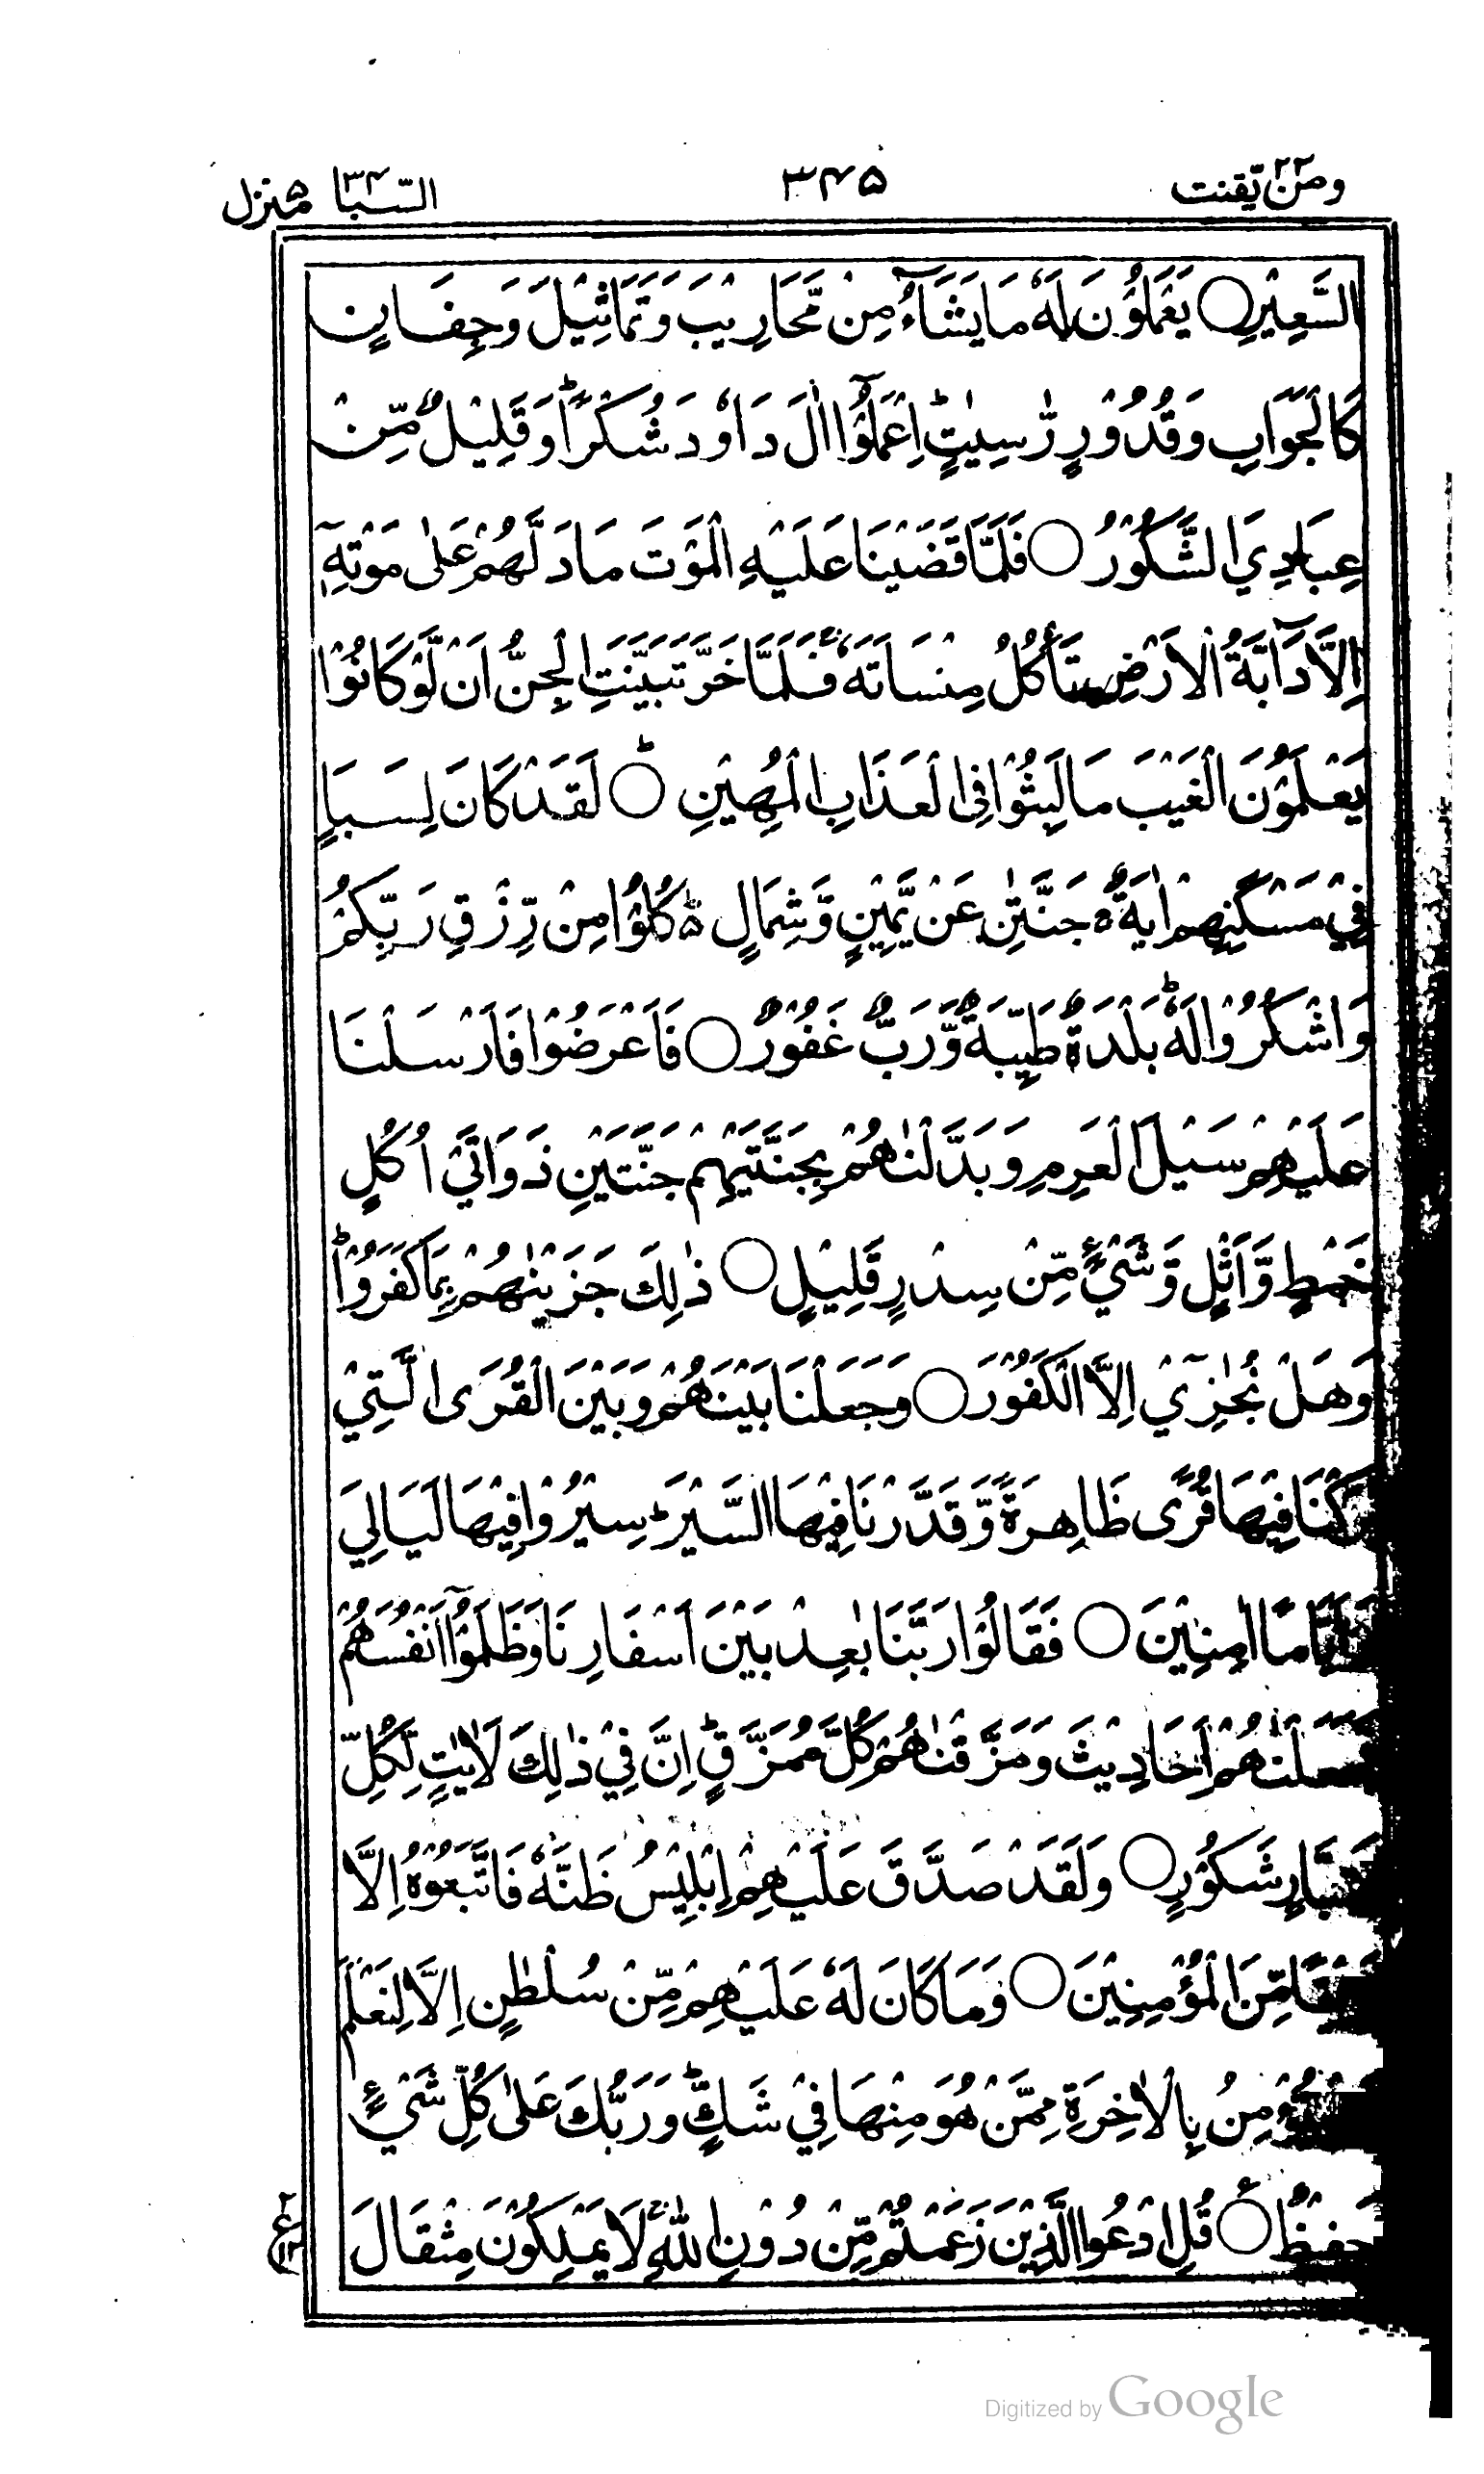 ومن يّقنت ٢٢
٣۴۵
السّبا ٣۴ منزل ۵
السَّعِيْرِ ○ يَعْمَلُوْنَ لَهٗ مَا يَشَآءُ مِنْ مَّحَارِيْبَ وَتَمَاثِيْلَ وَجِفَانٍ
كَالْجَوَابِ وَقُدُوْرٍ رّٰسِيٰتٍ ؕ اِعْمَلُوْٓا اٰلَ دَاوٗدَ شُكْرًا ؕ وَقَلِيْلٌ مِّنْ
عِبَادِيَ الشَّكُوْرُ ○ فَلَمَّا قَضَيْنَا عَلَيْهِ الْمَوْتَ مَا دَلَّهُمْ عَلٰى مَوْتِهٖٓ
اِلَّا دَآبَّةُ الْاَرْضِ تَاْكُلُ مِنْسَاَتَهٗ ۚ فَلَمَّا خَرَّ تَبَيَّنَتِ الْجِنُّ اَنْ لَّوْ كَانُوْا
يَعْلَمُوْنَ الْغَيْبَ مَا لَبِثُوْا فِى الْعَذَابِ الْمُهِيْنِ ○ ؕ لَقَدْ كَانَ لِسَبَاٍ
فِيْ مَسْكَنِهِمْ اٰيَةٌ ۚ جَنَّتٰنِ عَنْ يَّمِيْنٍ وَّشِمَالٍ ؕ كُلُوْا مِنْ رِّزْقِ رَبِّكُمْ
وَاشْكُرُوْا لَهٗ ؕ بَلْدَةٌ طَيِّبَةٌ وَّرَبٌّ غَفُوْرٌ ○ فَاَعْرَضُوْا فَاَرْسَلْنَا
عَلَيْهِمْ سَيْلَ الْعَرِمِ وَبَدَّلْنٰهُمْ بِجَنَّتَيْهِمْ جَنَّتَيْنِ ذَوَاتَيْ اُكُلٍ
خَمْطٍ وَّاَثْلٍ وَّشَيْءٍ مِّنْ سِدْرٍ قَلِيْلٍ ○ ذٰلِكَ جَزَيْنٰهُمْ بِمَا كَفَرُوْا ؕ
وَهَلْ نُجٰزِيْٓ اِلَّا الْكَفُوْرَ ○ وَجَعَلْنَا بَيْنَهُمْ وَبَيْنَ الْقُرَى الَّتِيْ
بٰرَكْنَا فِيْهَا قُرًى ظَاهِرَةً وَّقَدَّرْنَا فِيْهَا السَّيْرَ ؕ سِيْرُوْا فِيْهَا لَيَالِيَ
وَاَيَّامًا اٰمِنِيْنَ ○ فَقَالُوْا رَبَّنَا بٰعِدْ بَيْنَ اَسْفَارِنَا وَظَلَمُوْٓا اَنْفُسَهُمْ
فَجَعَلْنٰهُمْ اَحَادِيْثَ وَمَزَّقْنٰهُمْ كُلَّ مُمَزَّقٍ ؕ اِنَّ فِيْ ذٰلِكَ لَاٰيٰتٍ لِّكُلِّ
صَبَّارٍ شَكُوْرٍ ○ وَلَقَدْ صَدَّقَ عَلَيْهِمْ اِبْلِيْسُ ظَنَّهٗ فَاتَّبَعُوْهُ اِلَّا
فَرِيْقًا مِّنَ الْمُؤْمِنِيْنَ ○ وَمَا كَانَ لَهٗ عَلَيْهِمْ مِّنْ سُلْطٰنٍ اِلَّا لِنَعْلَمَ
يُّؤْمِنُ بِالْاٰخِرَةِ مِمَّنْ هُوَ مِنْهَا فِيْ شَكٍّ ؕ وَرَبُّكَ عَلٰى كُلِّ شَيْءٍ
حَفِيْظٌ ○ قُلِ ادْعُوا الَّذِيْنَ زَعَمْتُمْ مِّنْ دُوْنِ اللّٰهِ ۚ لَا يَمْلِكُوْنَ مِثْقَالَ
Digitized by Google